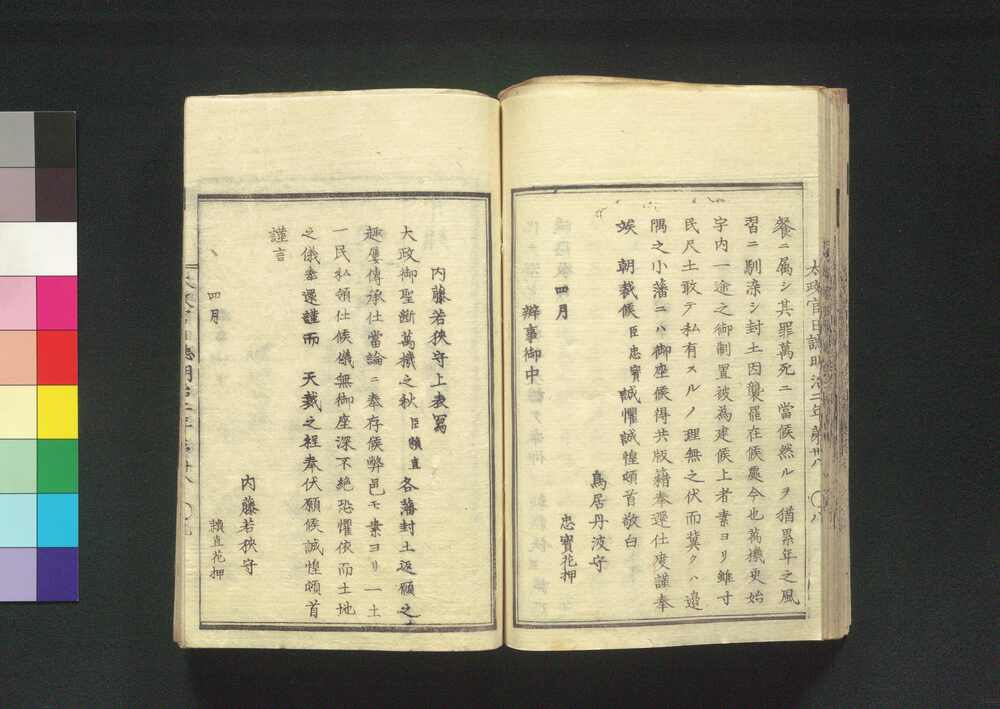 太政官日誌明治二年第卅八
餐ニ属シ其罪萬死ニ當候然ルヲ猶累年之風
習ニ馴染シ封土因襲罷在候處今也萬機更始
宇内一途之御制置被為建候上者素ヨリ雖寸
民尺土敢テ私有スルノ理無之伏而冀クハ邉
隅之小藩ニハ御座候得共版籍奉還仕度謹奉
竢　朝裁候臣忠寳誠懼誠惶頓首敬白
鳥居丹波守
忠寳花押
四月
辨事御中
内藤若狹守上表寫
大政御聖断萬機之秋臣頼直各藩封土返願之
趣屢傳承仕當論ニ奉存候弊邑モ素ヨリ一土
一民私領仕候儀無御座深不絶恐懼依而土地
之儀奉還謹而　天裁之程奉伏願候誠惶頓首
謹言
四月
内藤若狹守
頼直花押